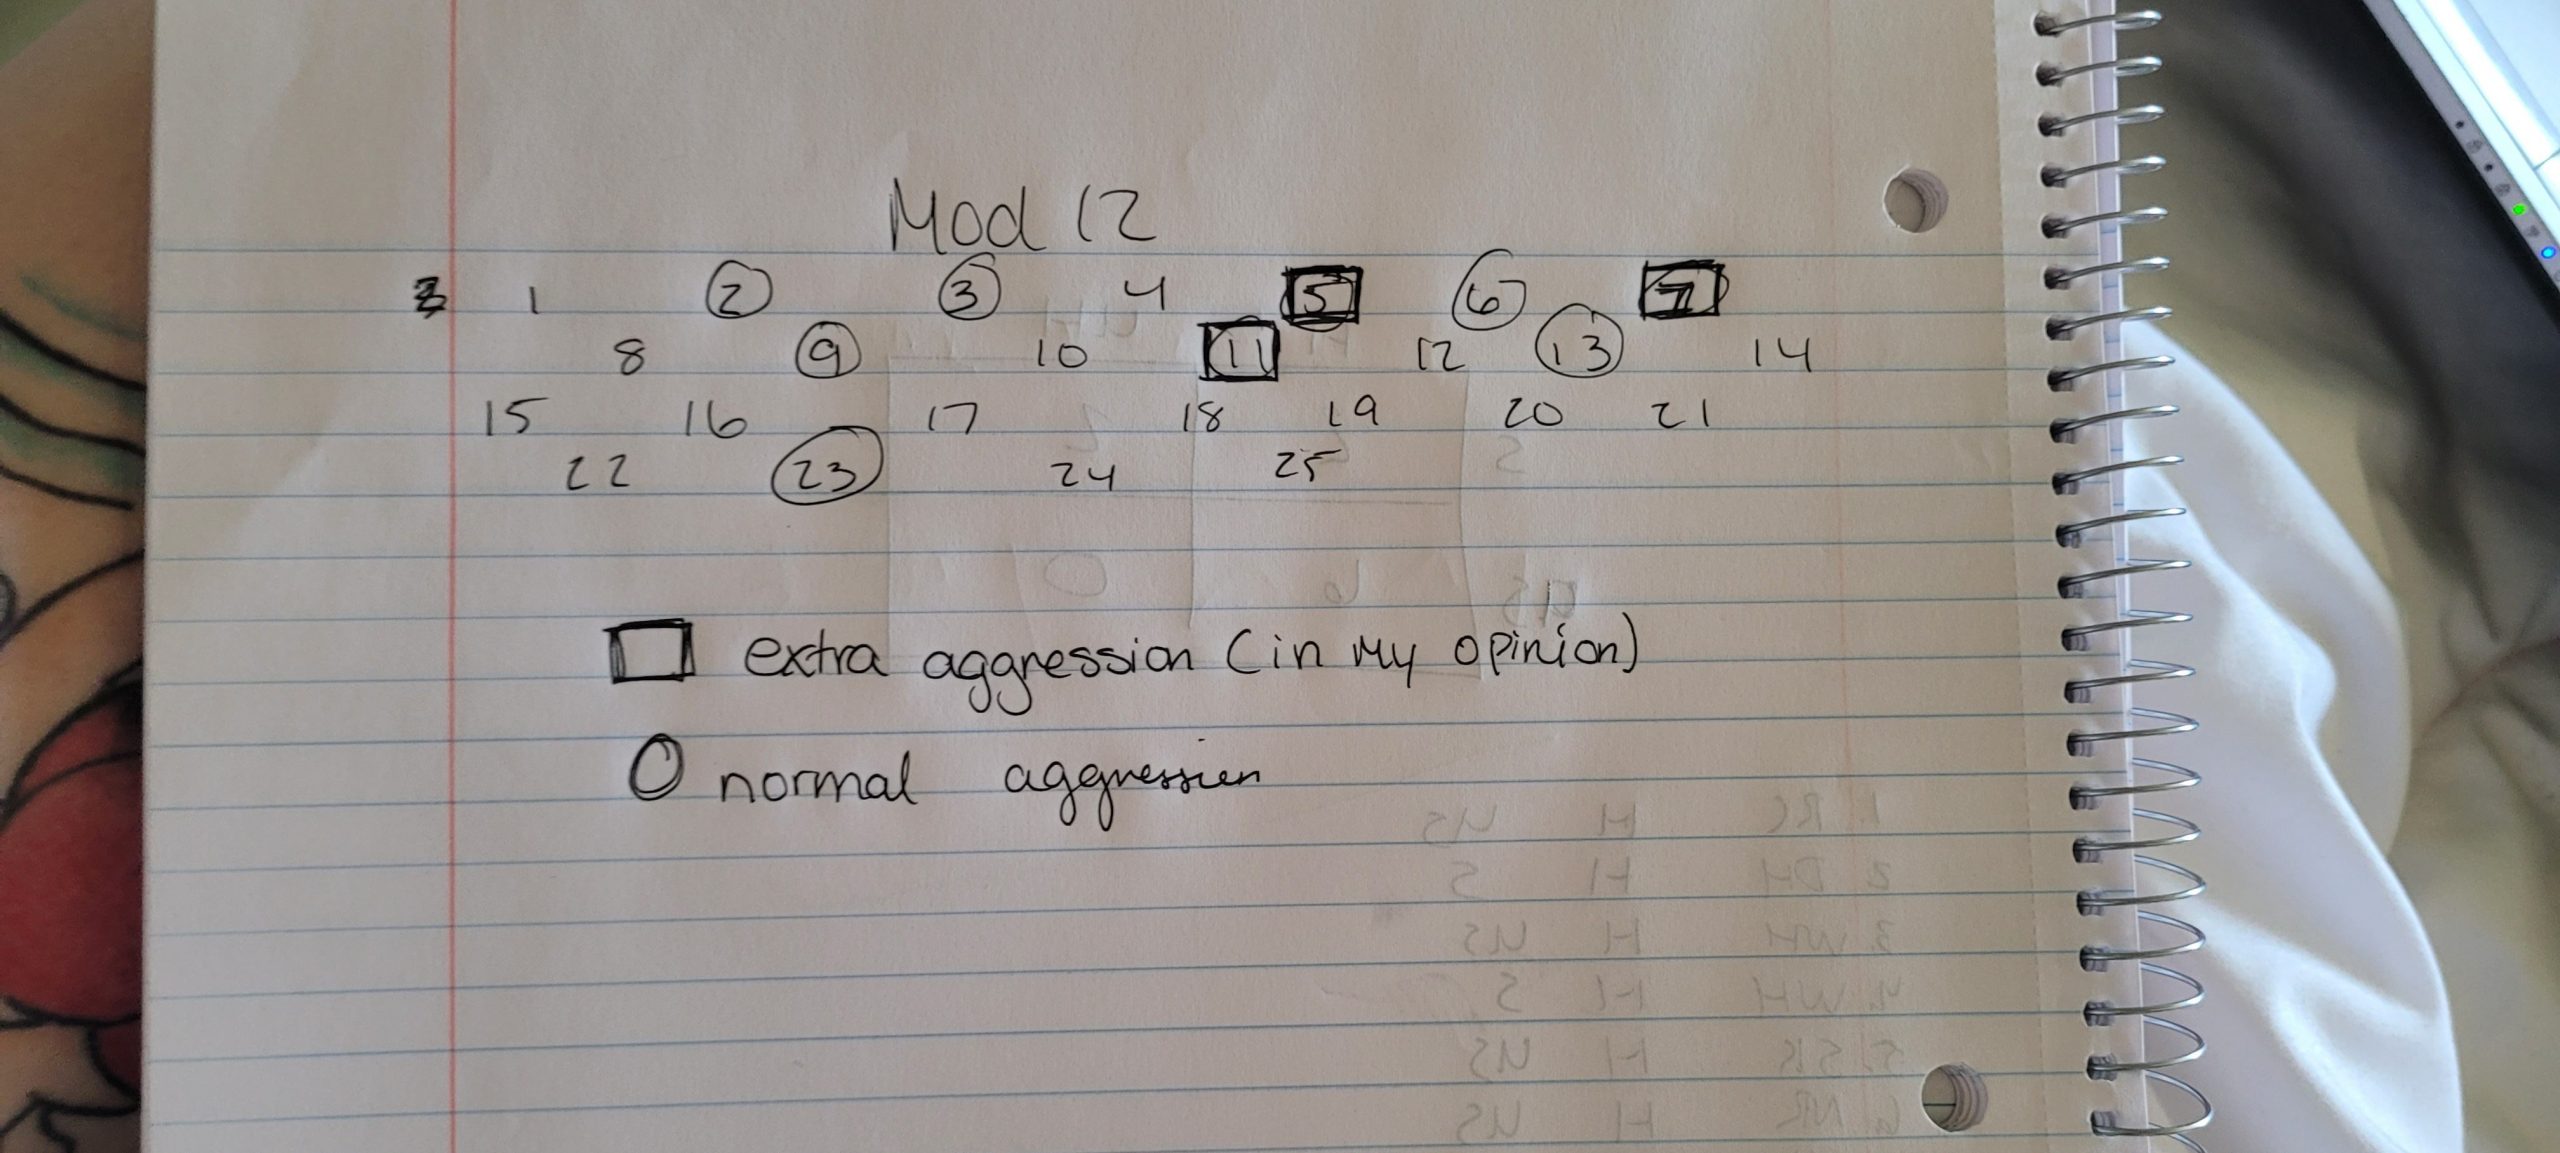 Mod 12
1 2 3 4 5 6 7
8 9 10 11 12 13 14
15 16 17 18 19 20 21
22 23 24 25
extra aggression (in my opinion)
normal aggression